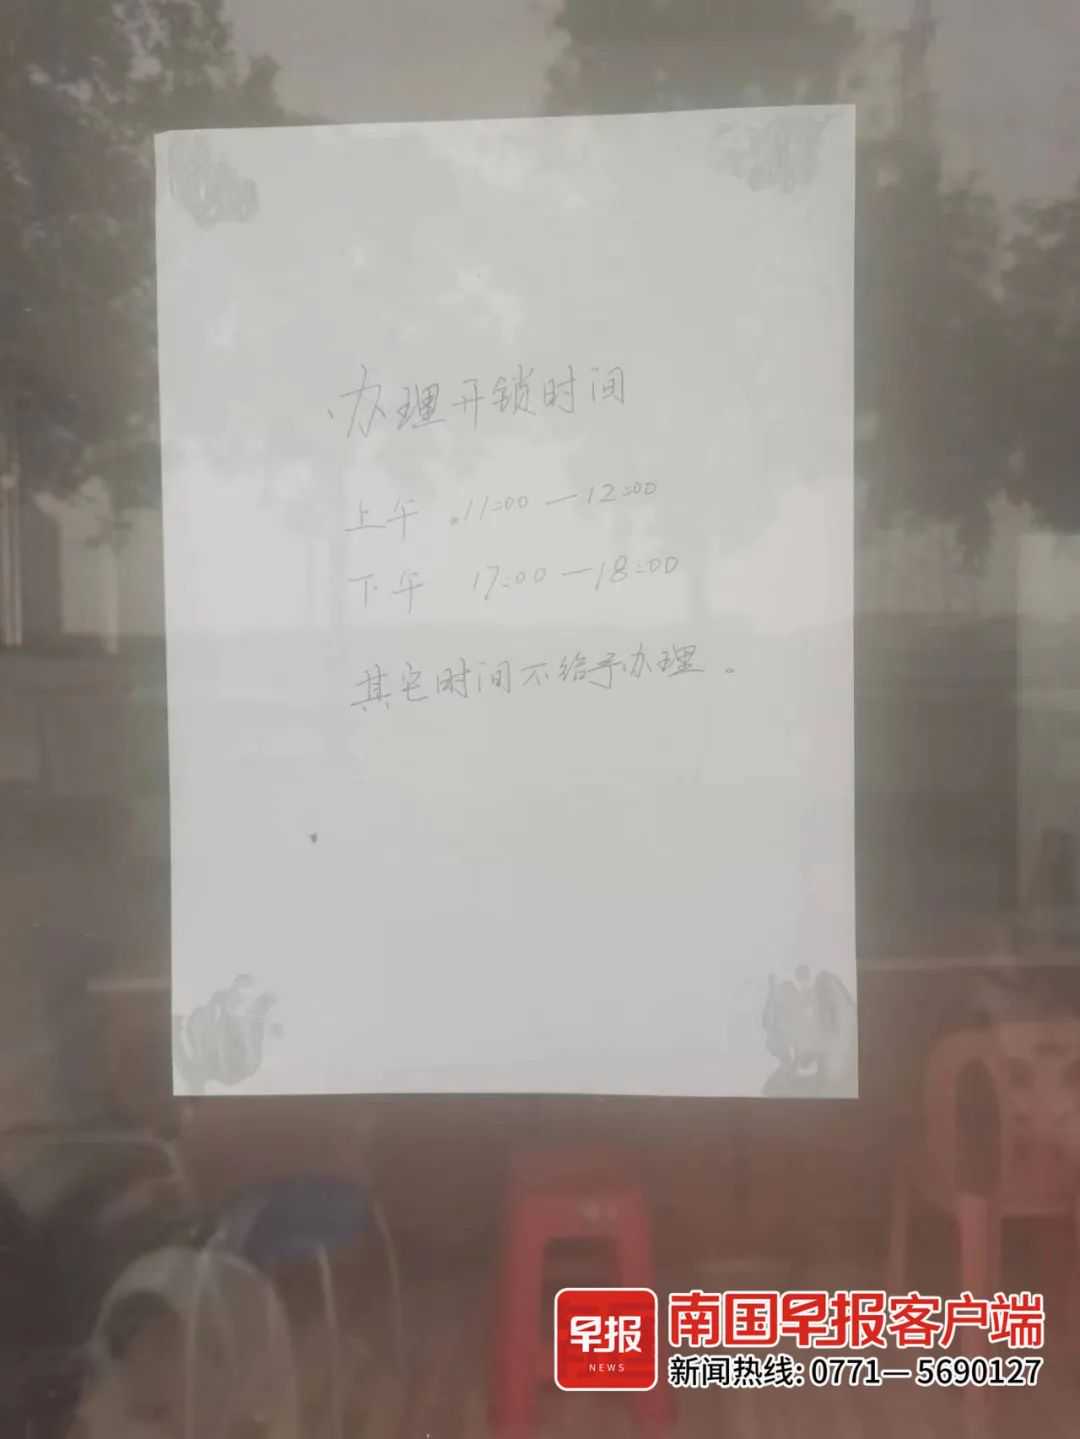 办理开锁时间
上午 11:00—12:00
下午 17:00—18:00
其它时间不给予办理。
早报
NEWS
南国早报客户端
新闻热线: 0771—5690127